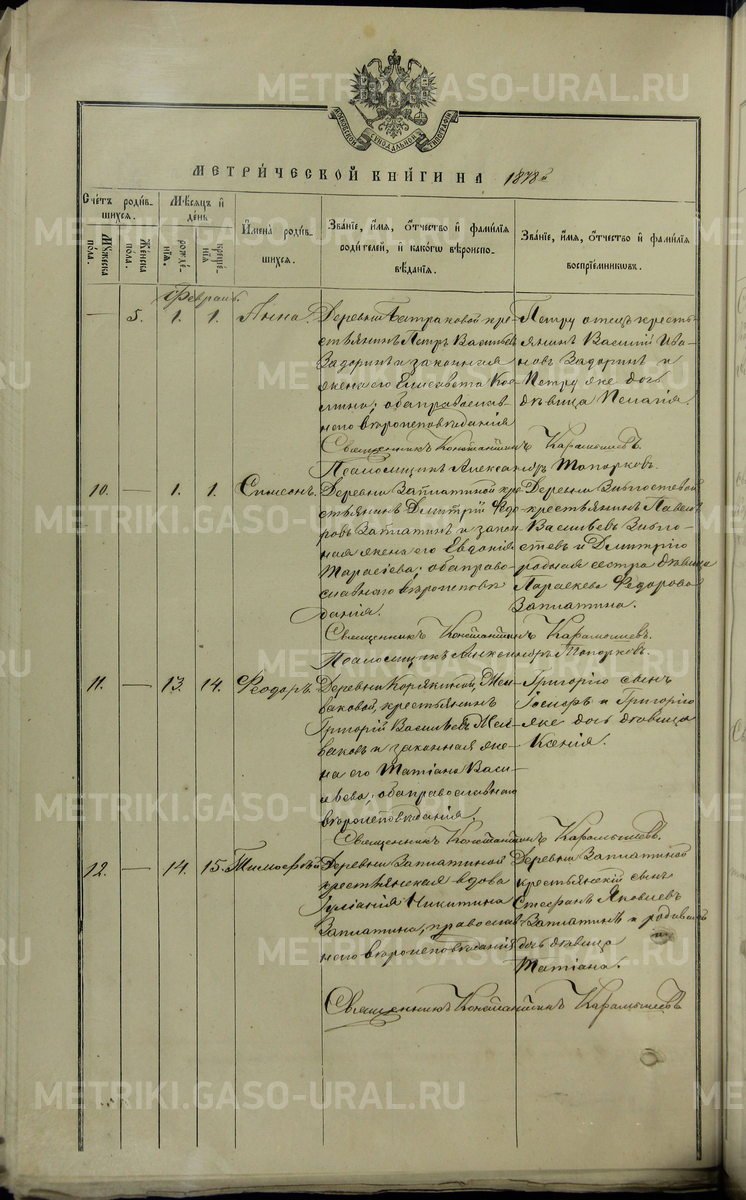 МОСКОВСКОЙ СѴНОДАЛЬНОЙ ТИПОГРАФІИ
МЕТРИ́ЧЕСКОЙ КНИ́ГИ НА 1878й
Счетъ роди́вшихся.
Мѣсяцъ и день
Имена роди́вшихся.
Зва́ніе, имя, о́тчество и фами́лія роди́телей, и како́гѡ вѣроисповѣ́данія.
Зва́ніе, имя, о́тчество и фами́лія воспріе́мникѡвъ.
Мужеска пола.
Женска пола.
рожде́нія.
креще́нія
Февраль.
— 5. 1. 1. Анна.
Деревни Батраковой кре-
стьянинъ Петръ Васильевъ
Задоринъ и законная
жена его Елисавета Кос-
мина; оба православ-
наго вѣроисповѣданія
Петру отецъ кресть-
янинъ Василій Ива-
новъ Задоринъ и
Петру же дочь
дѣвица Пелагія.
Священникъ Константинъ Карамышевъ.
Псаломщикъ Александръ Топорковъ.
10. — 1. 1. Симеонъ.
Деревни Заплатиной кре-
стьянинъ Дмитрій Федо-
ровъ Заплатинъ и закон-
ная жена его Евдокія
Тарасіева; оба право-
славнаго вѣроисповѣ-
данія.
крестьянинъ Павелъ
Васильевъ
и Дмитрію
родная сестра дѣвица
Параскева Федорова
Заплатина.
Священникъ Константинъ Карамышевъ.
Псаломщикъ Александръ Топорковъ.
11. — 13. 14. Феодоръ.
Деревни Корякиной,
крестьянинъ
Григорій Васильевъ
и законная же-
на его Татіана Васи-
льева; оба православнаго
вѣроисповѣданія.
Григорію сынъ
и Григорію
же дочь дѣвица
Ксенія.
Священникъ Константинъ Карамышевъ.
12. — 14. 15. Тимофей
Деревни Заплатиной
крестьянская вдова
Іуліанія Никитина
Заплатина, православ-
наго вѣроисповѣданія
Деревни Заплатиной
крестьянскій сынъ
Стефанъ Яковлевъ
Заплатинъ и родившей
дочь дѣвица
Татіана.
Священникъ Константинъ Карамышевъ
METRIKI.GASO-URAL.RU